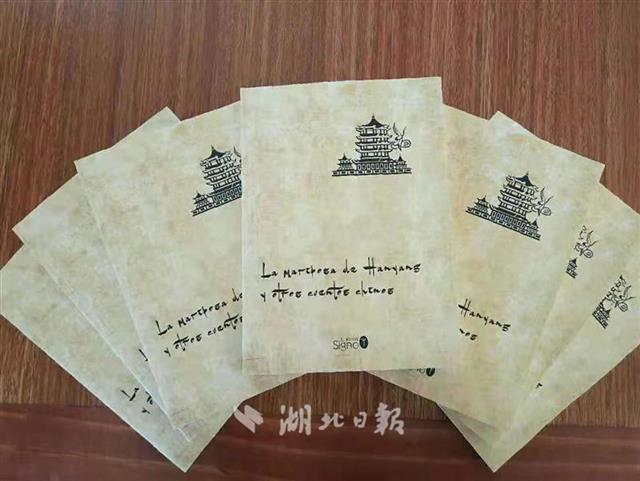 La mariposa de Hanyang
y otros cuentos chinos
Signo
La mariposa de
y otros cuentos
Hanyang
chinos
湖北日報